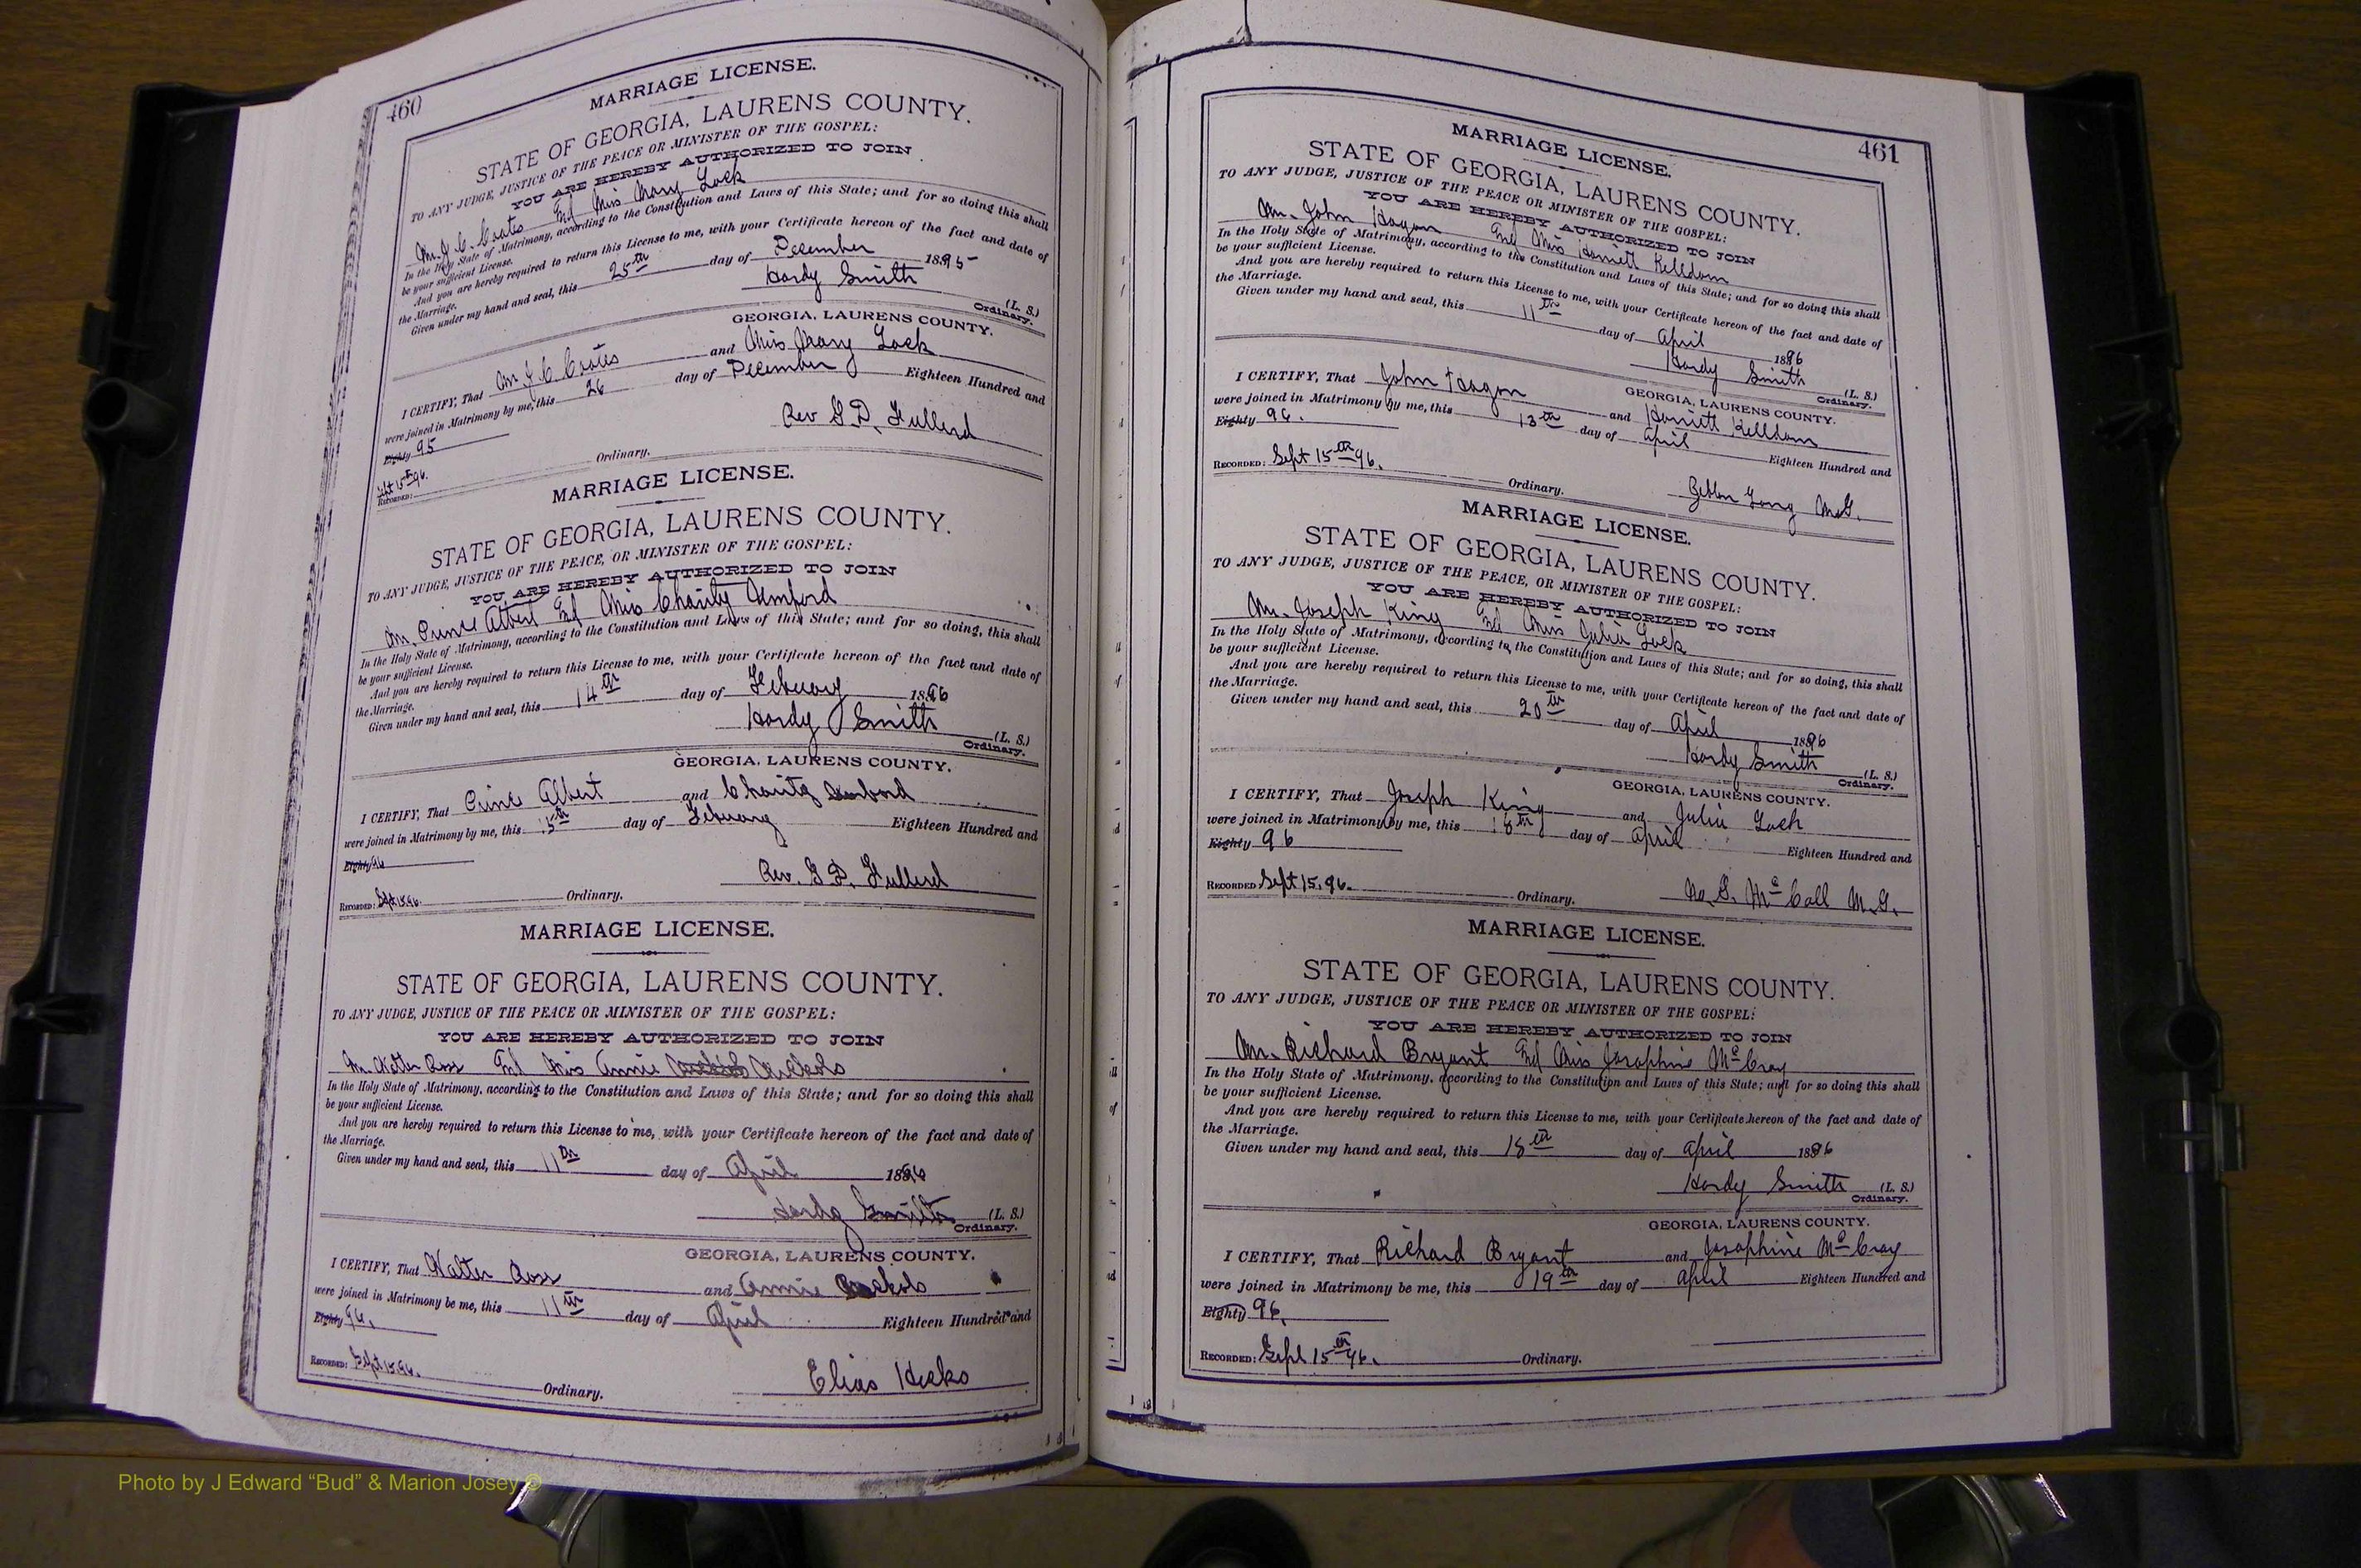 460
MARRIAGE LICENSE.
STATE OF GEORGIA, LAURENS COUNTY.
TO ANY JUDGE, JUSTICE OF THE PEACE OR MINISTER OF THE GOSPEL:
YOU ARE HEREBY AUTHORIZED TO JOIN
Mr. J. C. Coates And Miss Mary Lock
In the Holy State of Matrimony, according to the Constitution and Laws of this State; and for so doing this shall
be your sufficient License.
And you are hereby required to return this License to me, with your Certificate hereon of the fact and date of
the Marriage.
Given under my hand and seal, this 25th day of December 1895
Hardy Smith (L. S.)
Ordinary.
GEORGIA, LAURENS COUNTY.
I CERTIFY, That Mr J. C. Coates and Miss Mary Lock
were joined in Matrimony by me, this 26 day of December Eighteen Hundred and
Eighty 95
Rev G. D.
Ordinary.
RECORDED: Sept 15th 96.
MARRIAGE LICENSE.
STATE OF GEORGIA, LAURENS COUNTY.
TO ANY JUDGE, JUSTICE OF THE PEACE, OR MINISTER OF THE GOSPEL:
YOU ARE HEREBY AUTHORIZED TO JOIN
Mr. Prince Albert And Miss Charity
In the Holy State of Matrimony, according to the Constitution and Laws of this State; and for so doing, this shall
be your sufficient License.
And you are hereby required to return this License to me, with your Certificate hereon of the fact and date of
the Marriage.
Given under my hand and seal, this 14th day of Febuary 1896
Hardy Smith (L. S.)
Ordinary.
GEORGIA, LAURENS COUNTY.
I CERTIFY, That Prince Albert and Charity
were joined in Matrimony by me, this 15th day of Febuary Eighteen Hundred and
Eighty 96
Rev. G. D.
RECORDED: Sept 15 96. Ordinary.
MARRIAGE LICENSE.
STATE OF GEORGIA, LAURENS COUNTY.
TO ANY JUDGE, JUSTICE OF THE PEACE OR MINISTER OF THE GOSPEL:
YOU ARE HEREBY AUTHORIZED TO JOIN
Mr. Walter Ross And Miss Annie Nickols
In the Holy State of Matrimony, according to the Constitution and Laws of this State; and for so doing this shall
be your sufficient License.
And you are hereby required to return this License to me, with your Certificate hereon of the fact and date of
the Marriage.
Given under my hand and seal, this 11th day of April 1896
Hardy Smith (L. S.)
Ordinary.
GEORGIA, LAURENS COUNTY.
I CERTIFY, That Walter Ross and Annie
were joined in Matrimony be me, this 11th day of April Eighteen Hundred and
Eighty 96.
RECORDED: Sept 15 96. Ordinary.
Elias Hicks
461
MARRIAGE LICENSE.
STATE OF GEORGIA, LAURENS COUNTY.
TO ANY JUDGE, JUSTICE OF THE PEACE OR MINISTER OF THE GOSPEL:
YOU ARE HEREBY AUTHORIZED TO JOIN
Mr. John Hagan And Miss Harriett Kelldom
In the Holy State of Matrimony, according to the Constitution and Laws of this State; and for so doing this shall
be your sufficient License.
And you are hereby required to return this License to me, with your Certificate hereon of the fact and date of
the Marriage.
Given under my hand and seal, this 11th day of April 1896
Hardy Smith (L. S.)
Ordinary.
GEORGIA, LAURENS COUNTY.
I CERTIFY, That John Hagan and Harriett Kelldom
were joined in Matrimony by me, this 13th day of April Eighteen Hundred and
Eighty 96.
RECORDED: Sept 15th 96. Ordinary.
Long M.G.
MARRIAGE LICENSE.
STATE OF GEORGIA, LAURENS COUNTY.
TO ANY JUDGE, JUSTICE OF THE PEACE, OR MINISTER OF THE GOSPEL:
YOU ARE HEREBY AUTHORIZED TO JOIN
Mr. Joseph King And Miss Julia Lock
In the Holy State of Matrimony, according to the Constitution and Laws of this State; and for so doing, this shall
be your sufficient License.
And you are hereby required to return this License to me, with your Certificate hereon of the fact and date of
the Marriage.
Given under my hand and seal, this 20th day of April 1896
Hardy Smith (L. S.)
Ordinary.
GEORGIA, LAURENS COUNTY.
I CERTIFY, That Joseph King and Julia Lock
were joined in Matrimony by me, this 18th day of April Eighteen Hundred and
Eighty 96
RECORDED Sept 15, 96. Ordinary.
McCall M.G.
MARRIAGE LICENSE.
STATE OF GEORGIA, LAURENS COUNTY.
TO ANY JUDGE, JUSTICE OF THE PEACE OR MINISTER OF THE GOSPEL:
YOU ARE HEREBY AUTHORIZED TO JOIN
Mr. Richard Bryant And Miss Josophine McCray
In the Holy State of Matrimony, according to the Constitution and Laws of this State; and for so doing this shall
be your sufficient License.
And you are hereby required to return this License to me, with your Certificate hereon of the fact and date of
the Marriage.
Given under my hand and seal, this 18th day of April 1896
Hardy Smith (L. S.)
Ordinary.
GEORGIA, LAURENS COUNTY.
I CERTIFY, That Richard Bryant and Josophine McCray
were joined in Matrimony be me, this 19th day of April Eighteen Hundred and
Eighty 96.
RECORDED: Sept 15th 96. Ordinary.
Photo by J Edward “Bud” & Marion Josey ©